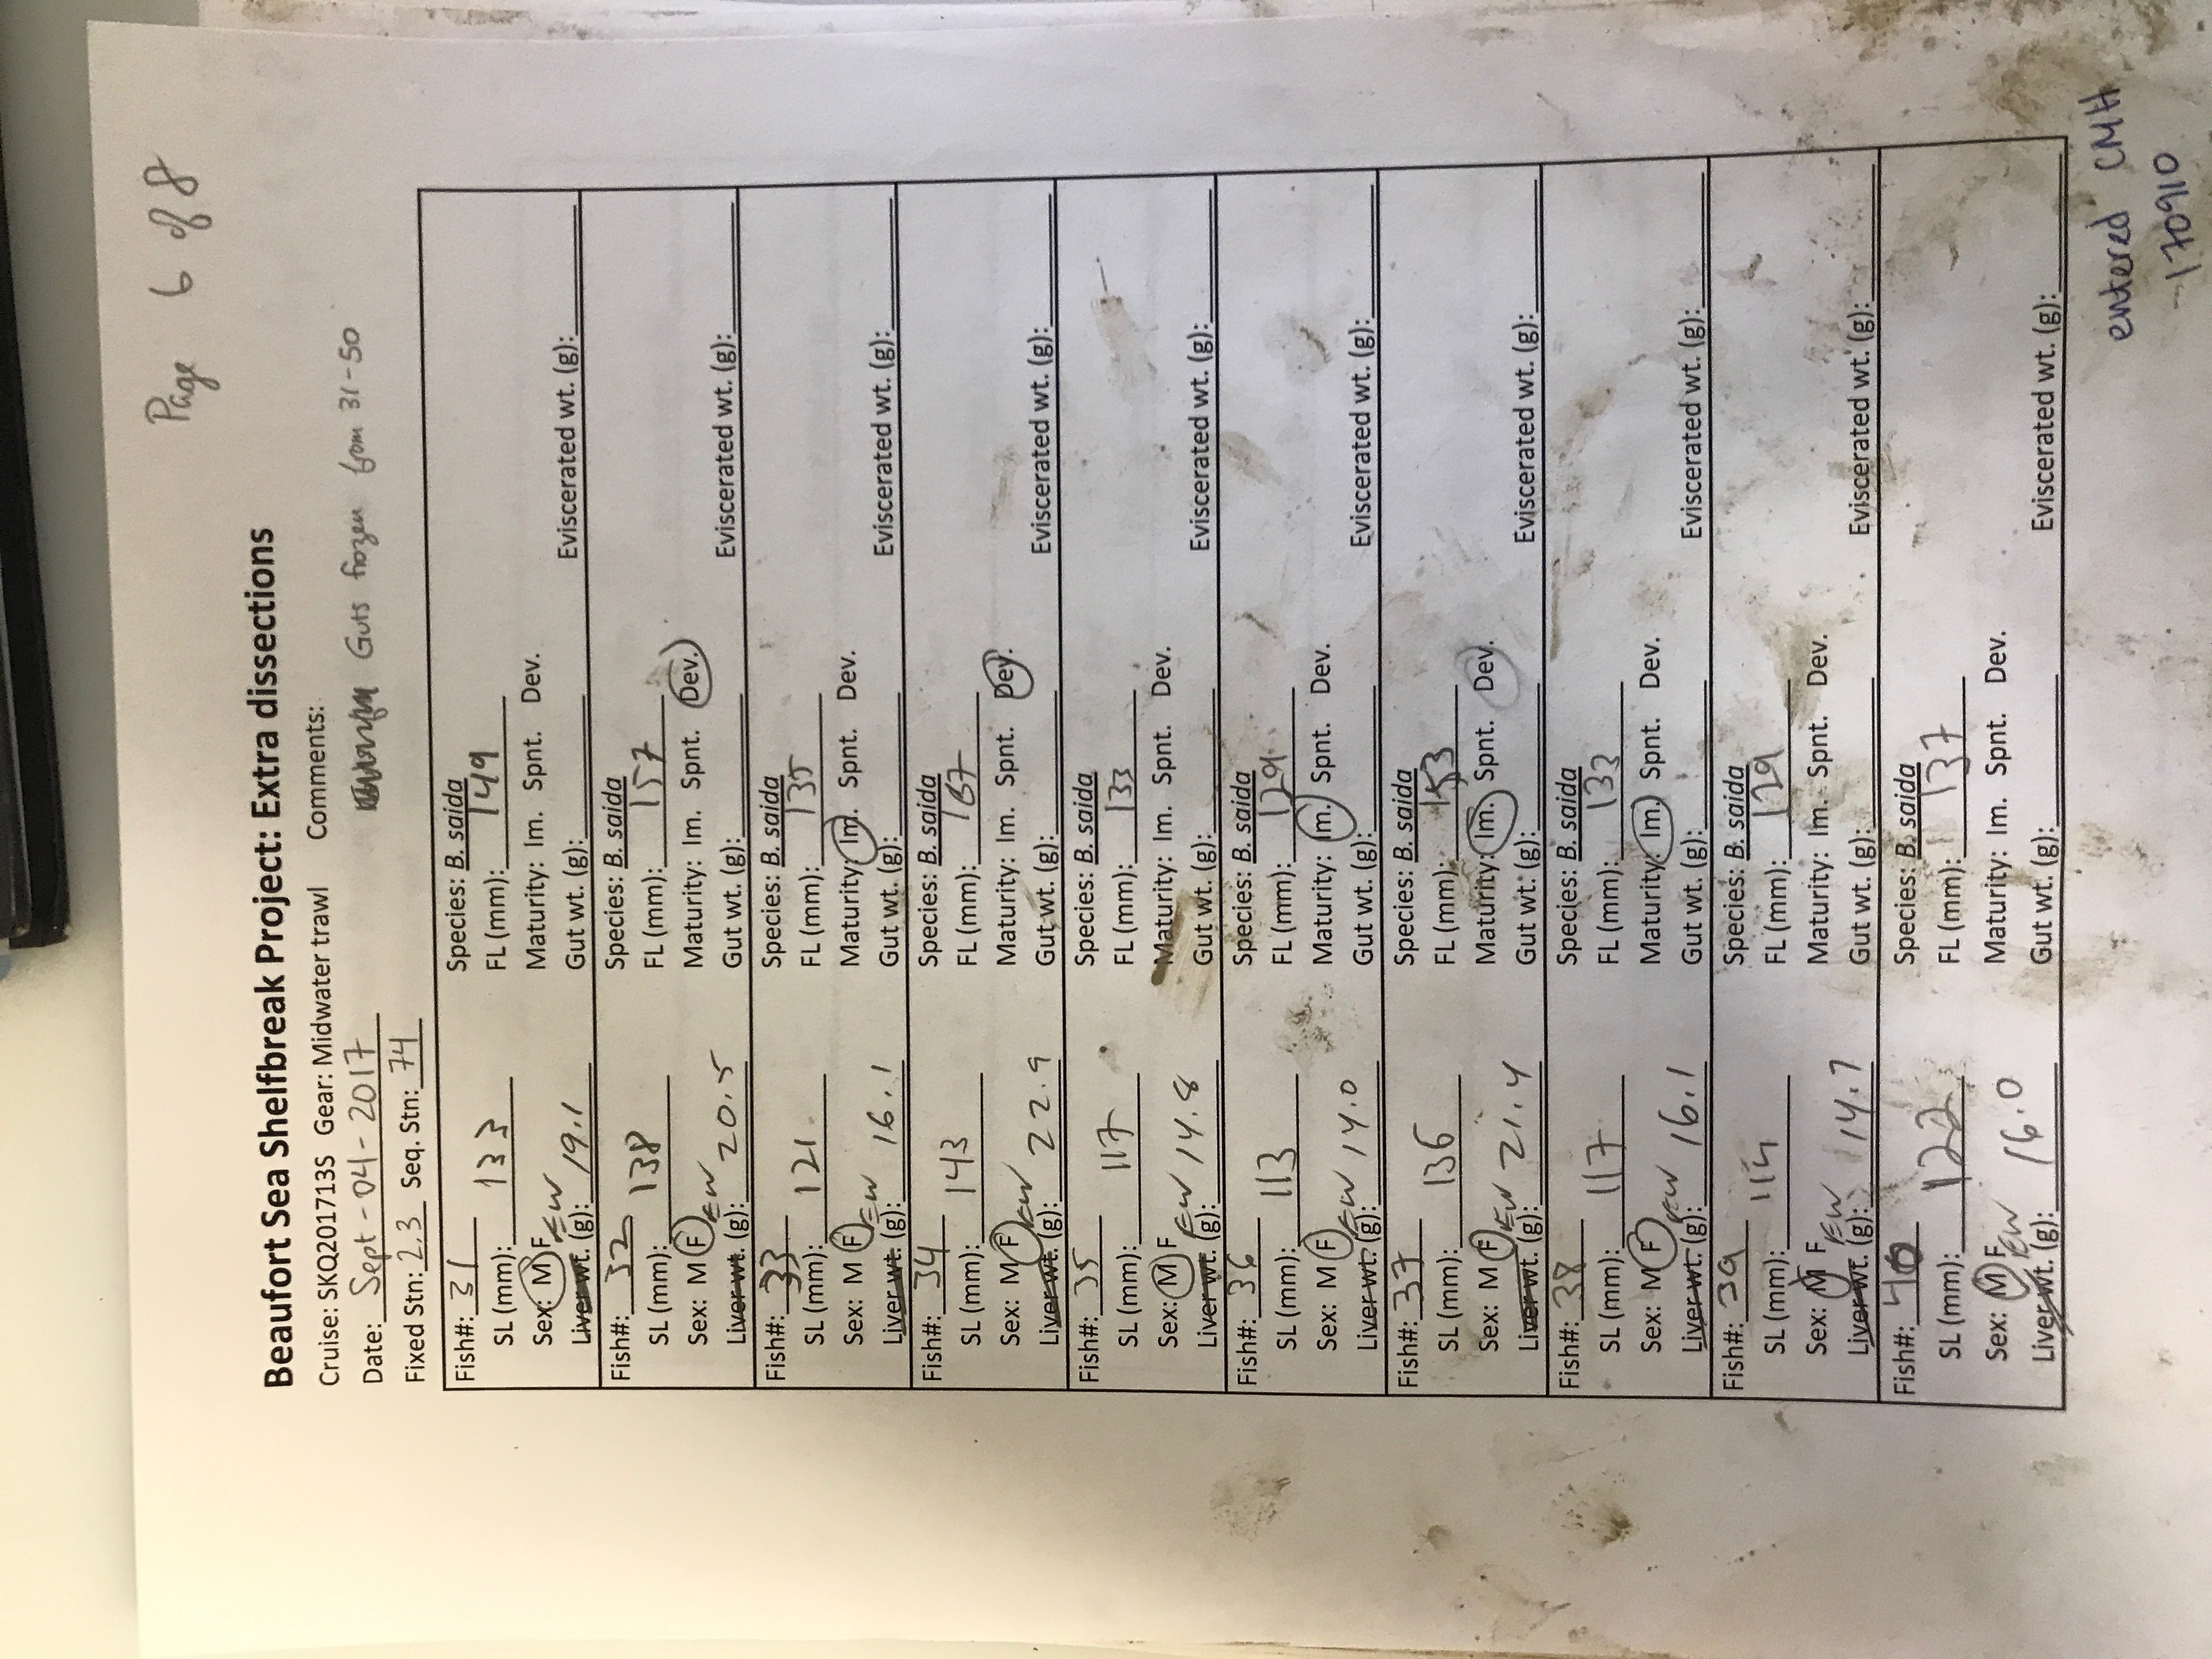 Page 6 of 8
Beaufort Sea Shelfbreak Project: Extra dissections
Cruise: SKQ201713S Gear: Midwater trawl Comments:
Date: Sept-04-2017 Guts frozen from 31-50
Fixed Stn: 2.3 Seq. Stn: 74
Fish#: 31 Species: B. saida
SL (mm): 133 FL (mm): 149
Sex: M F Maturity: Im. Spnt. Dev.
Liver wt. (g): EW 19.1 Gut wt. (g): Eviscerated wt. (g):
Fish#: 32 Species: B. saida
SL (mm): 138 FL (mm): 157
Sex: M F Maturity: Im. Spnt. Dev.
Liver wt. (g): EW 20.5 Gut wt. (g): Eviscerated wt. (g):
Fish#: 33 Species: B. saida
SL (mm): 121 FL (mm): 135
Sex: M F Maturity: Im. Spnt. Dev.
Liver wt. (g): EW 16.1 Gut wt. (g): Eviscerated wt. (g):
Fish#: 34 Species: B. saida
SL (mm): 143 FL (mm): 167
Sex: M F Maturity: Im. Spnt. Dev.
Liver wt. (g): EW 22.9 Gut wt. (g): Eviscerated wt. (g):
Fish#: 35 Species: B. saida
SL (mm): 117 FL (mm): 133
Sex: M F Maturity: Im. Spnt. Dev.
Liver wt. (g): EW 14.8 Gut wt. (g): Eviscerated wt. (g):
Fish#: 36 Species: B. saida
SL (mm): 113 FL (mm): 129
Sex: M F Maturity: Im. Spnt. Dev.
Liver wt. (g): EW 14.0 Gut wt. (g): Eviscerated wt. (g):
Fish#: 37 Species: B. saida
SL (mm): 136 FL (mm): 153
Sex: M F Maturity: Im. Spnt. Dev.
Liver wt. (g): EW 21.4 Gut wt. (g): Eviscerated wt. (g):
Fish#: 38 Species: B. saida
SL (mm): 117 FL (mm): 133
Sex: M F Maturity: Im. Spnt. Dev.
Liver wt. (g): EW 16.1 Gut wt. (g): Eviscerated wt. (g):
Fish#: 39 Species: B. saida
SL (mm): 114 FL (mm): 129
Sex: M F Maturity: Im. Spnt. Dev.
Liver wt. (g): EW 14.7 Gut wt. (g): Eviscerated wt. (g):
Fish#: 40 Species: B. saida
SL (mm): 122 FL (mm): 137
Sex: M F Maturity: Im. Spnt. Dev.
Liver wt. (g): EW 16.0 Gut wt. (g): Eviscerated wt. (g):
entered CMH
170910